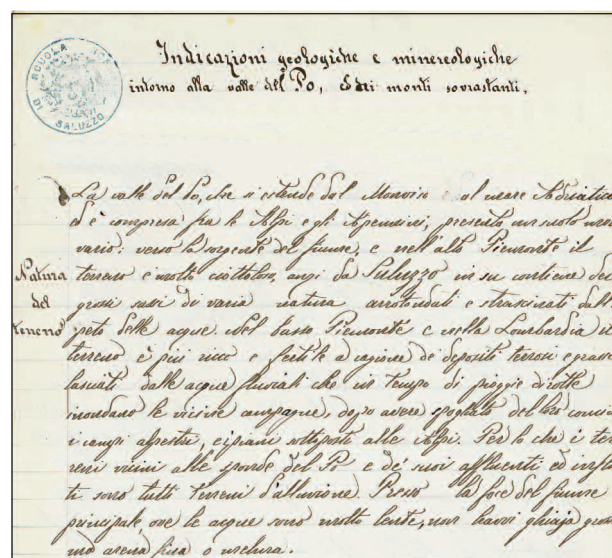 SCUOLA
DI SALUZZO
Indicazioni geologiche e minereologiche
intorno alla valle del Po, e dei monti sovrastanti.
La valle del Po, che si estende dal Monviso al mare Adriatico
ed è compresa fra le Alpi e gli Apennini, presenta un suolo
vario: verso la sorgente del fiume, e nell'alto Piemonte il
Natura
del
terreno
terreno è molto ciottoloso, anzi da Saluzzo in su contiene dei
grossi sassi di varia natura arrotondati e strascinati dall'
peto delle acque. Nel basso Piemonte e nella Lombardia il
terreno è più ricco e fertile a cagione de' depositi terrosi e grassi
lasciati dalle acque fluviali che in tempo di pioggie dirotte
inondano le vicine campagne, dopo avere spogliato del
i campi alpestri, e i piani sottoposti alle Alpi. Per lo che i ter
reni vicini alle sponde del Po e de' suoi affluenti ed
ti sono tutti terreni d'alluvione. Presso la foce del fiume
principale, ove le acque sono molto lente, non havvi ghiaja
ma arena fina o melma.